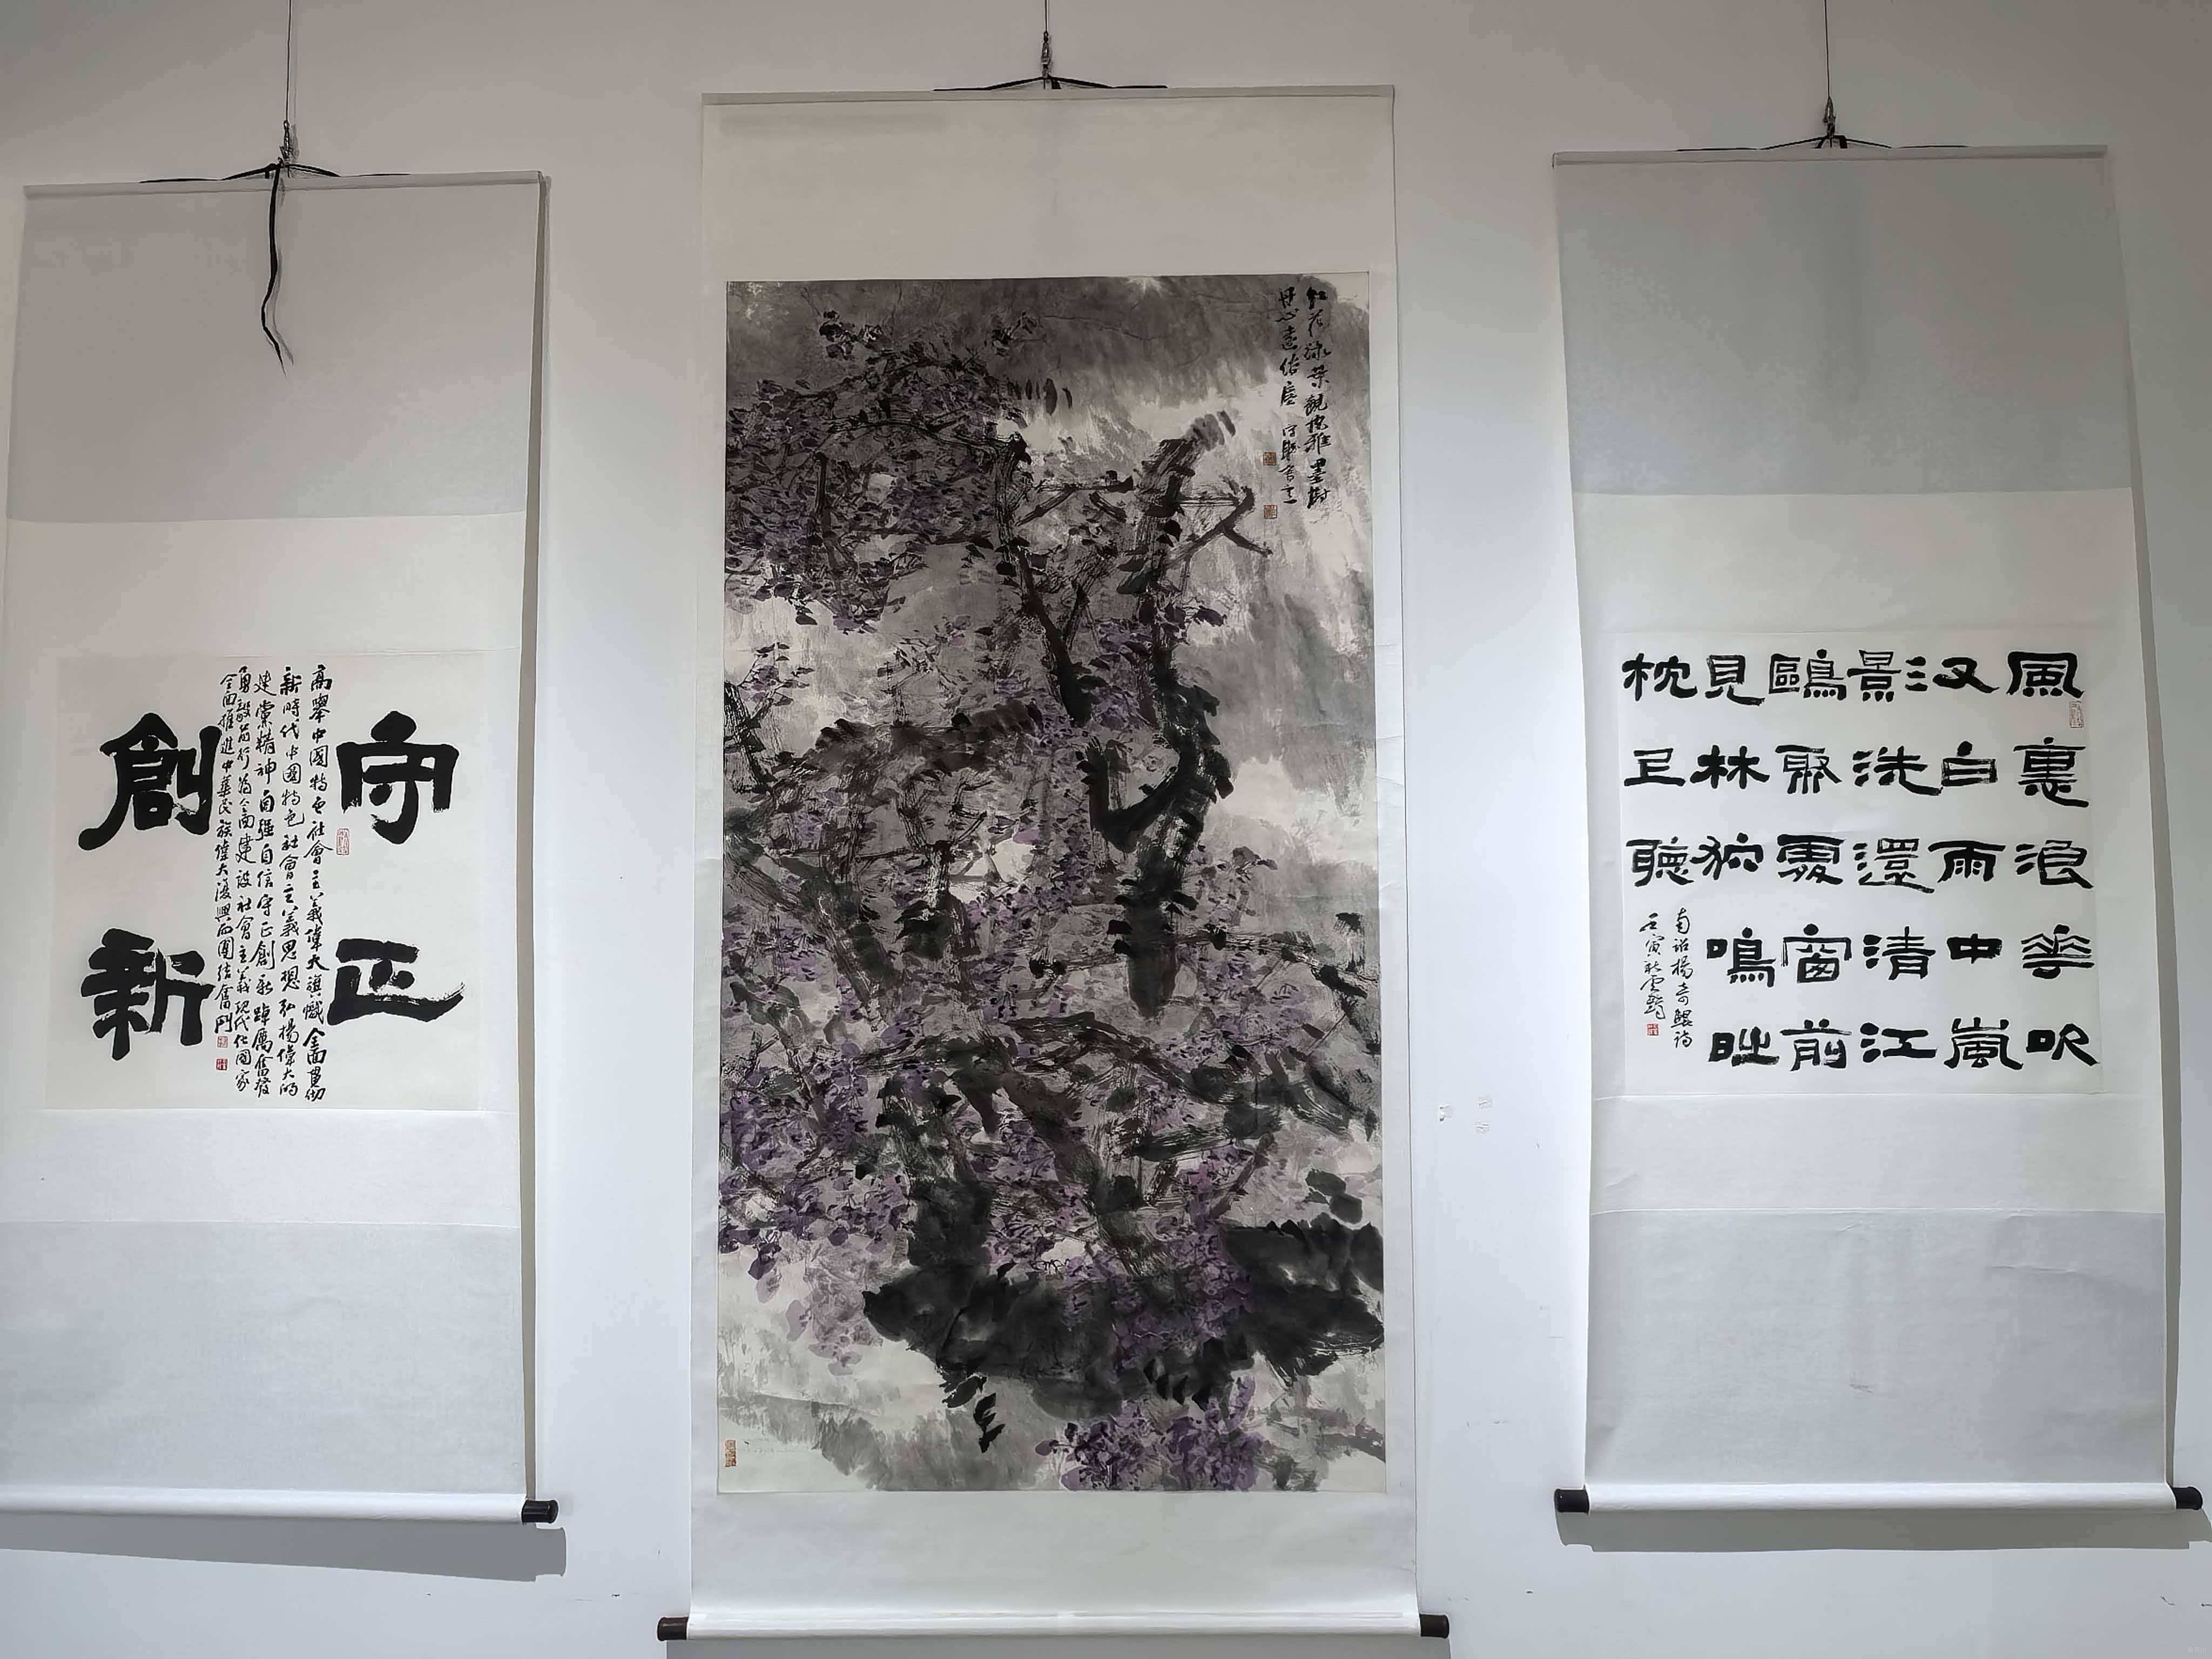 守正
高舉中國特色社會主義偉大旗幟全面貫彻
新時代中國特色社會主義思想弘揚偉大的
建黨精神自强自信守正創新踔厲奮發
勇毅前行為全面建設社會主義現代化國家
全面推進中華民族偉大復興而團結奮鬥
創新
紅花綠葉觀雅墨樹
丹心遠俗塵
風裏浪華吹
又白雨中嵐
影洗還清江
鷗聚處窗前
見林狖鳴時
枕上聽
南詔楊奇鯤詩
壬寅秋雲